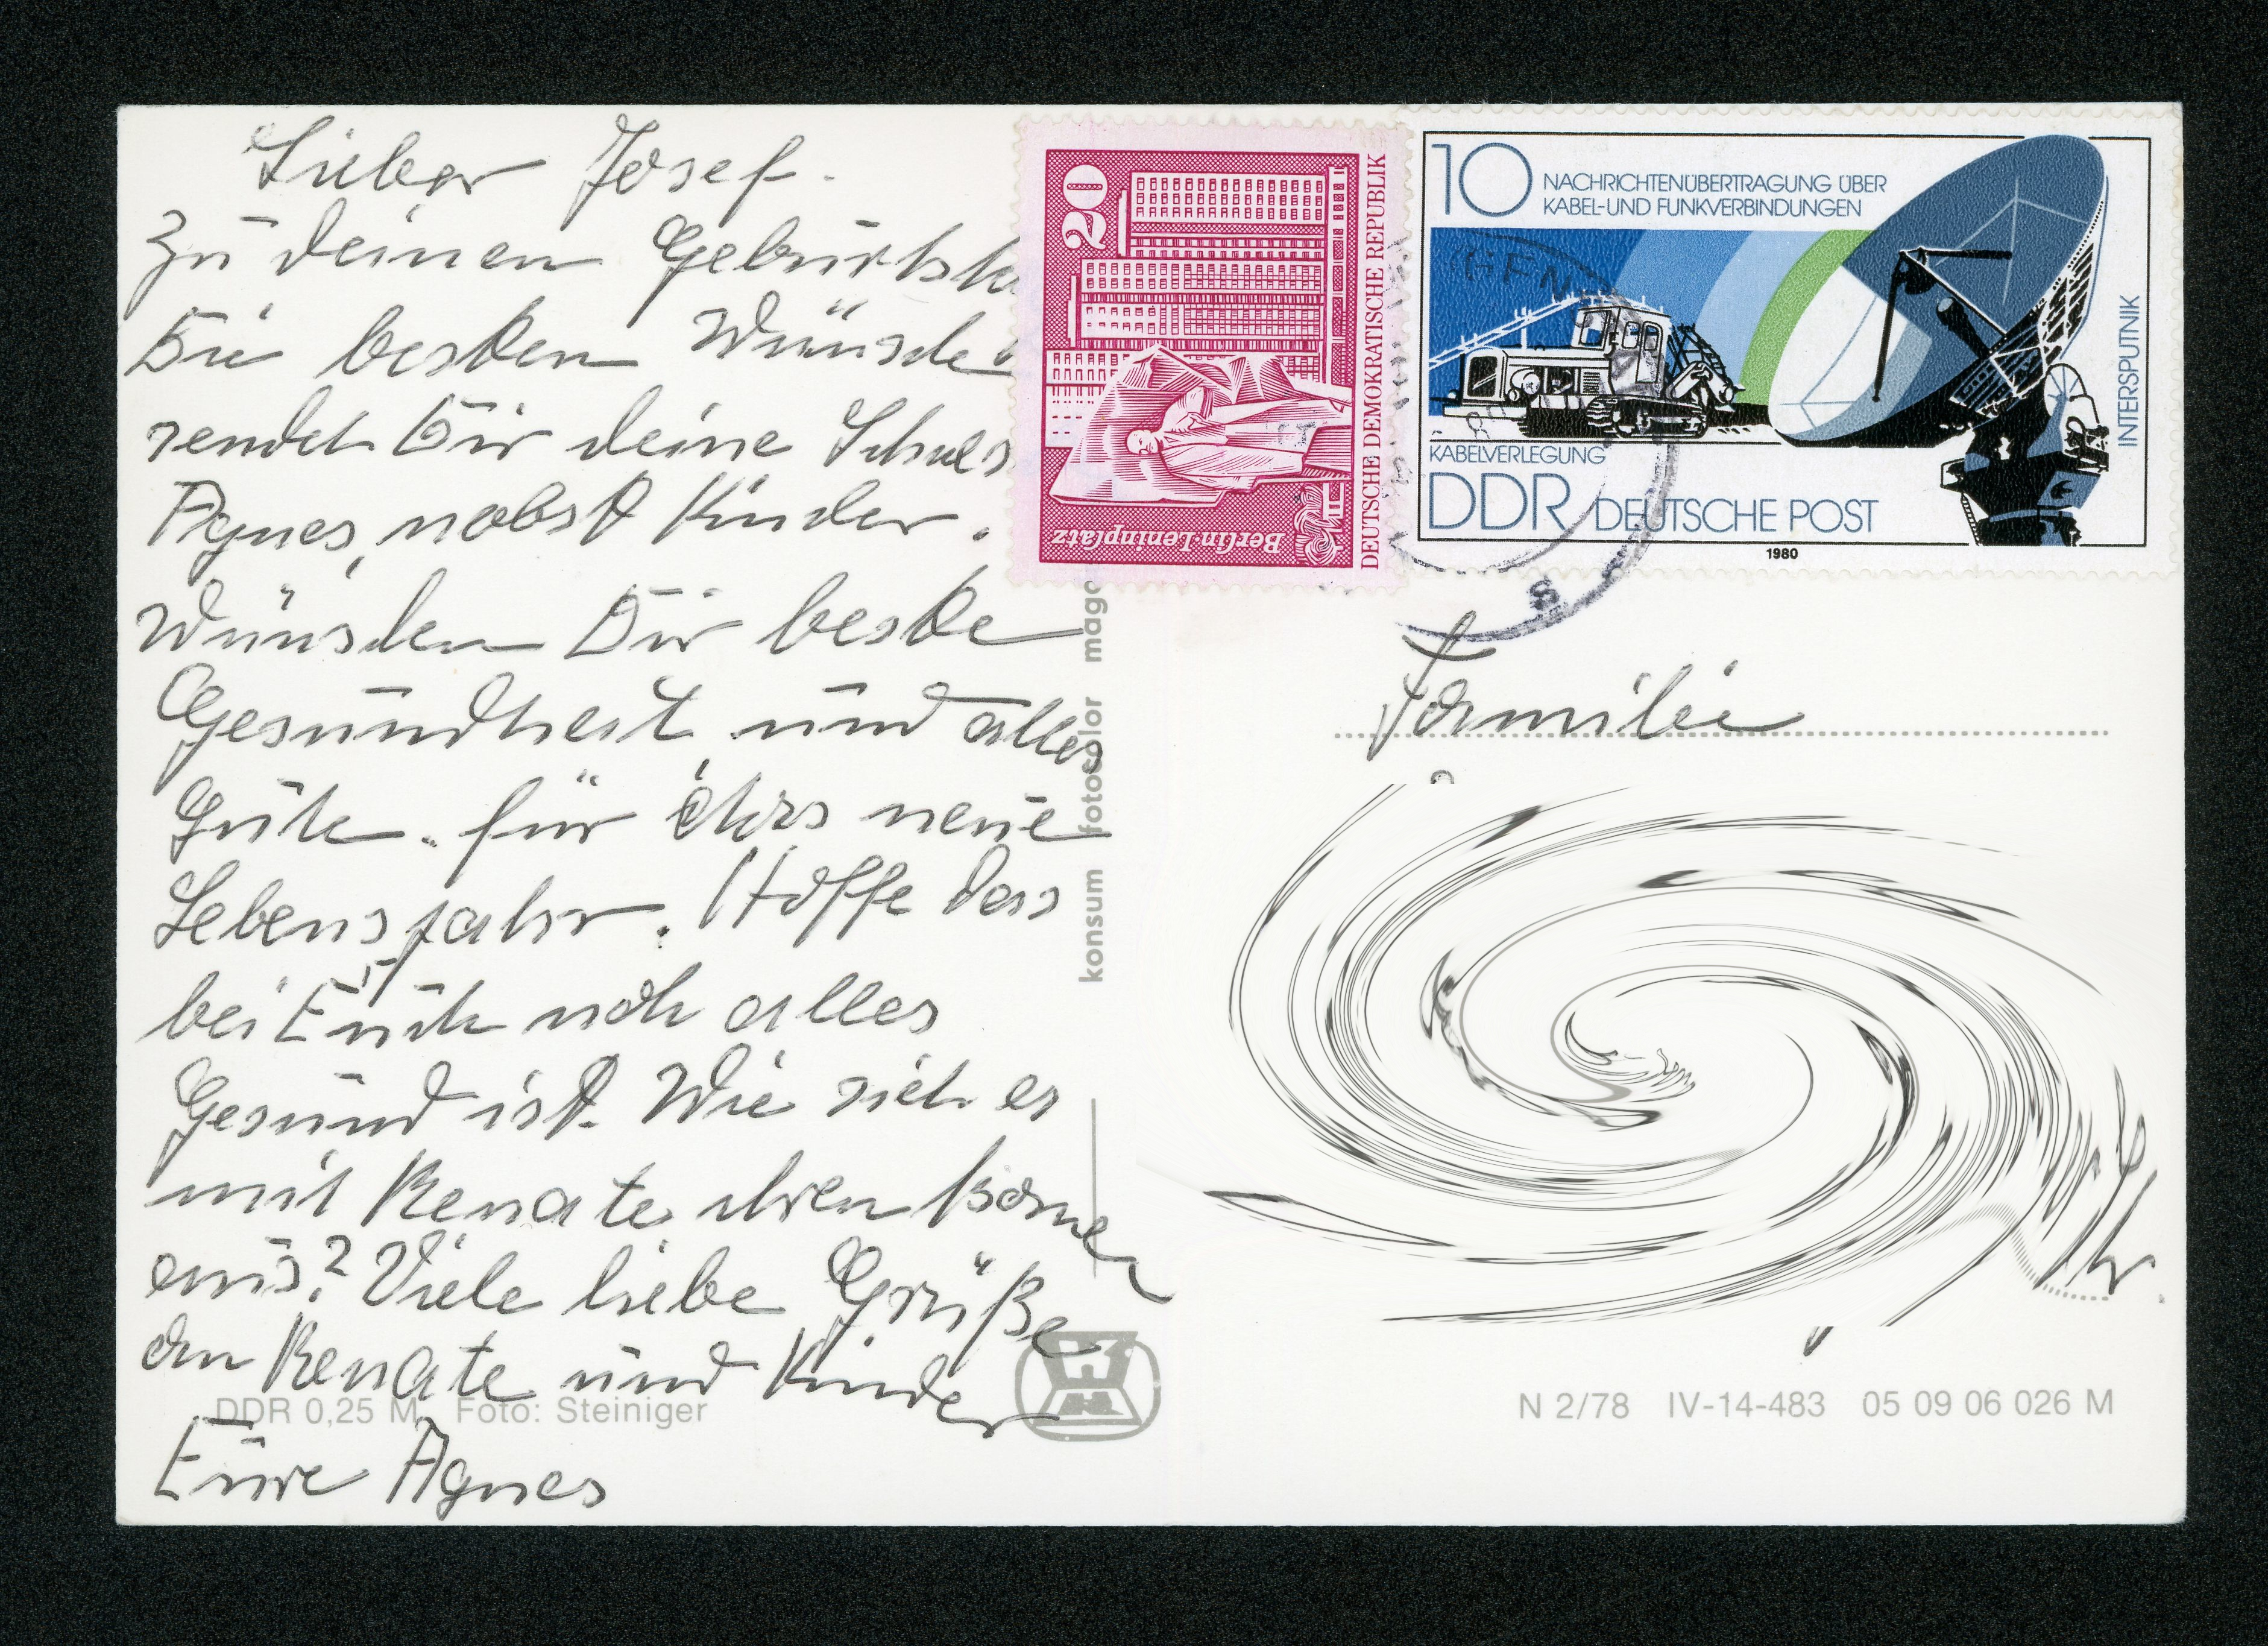 Lieber Josef.
Zu deinen Geburtsta
Die besten Wünsche
sendet Dir deine Schwes
Agnes, nebst Kinder.
Wünschen Dir beste
Gesundheit und alles
Gute. für das neue
Lebensjahr. Hoffe das
bei Euch noch alles
Gesund ist. Wie sieht es
mit Renate ihren
aus? Viele liebe Grüße
an Renate und Kinder
Eure Agnes
DDR 0,25 M Foto: Steiniger
konsum fotocolor mag
20
DEUTSCHE DEMOKRATISCHE REPUBLIK
Berlin-Leninplatz
10 NACHRICHTENÜBERTRAGUNG ÜBER
KABEL- UND FUNKVERBINDUNGEN
INTERSPUTNIK
KABELVERLEGUNG
DDR DEUTSCHE POST
1980
Familie
N 2/78 IV-14-483 05 09 06 026 M